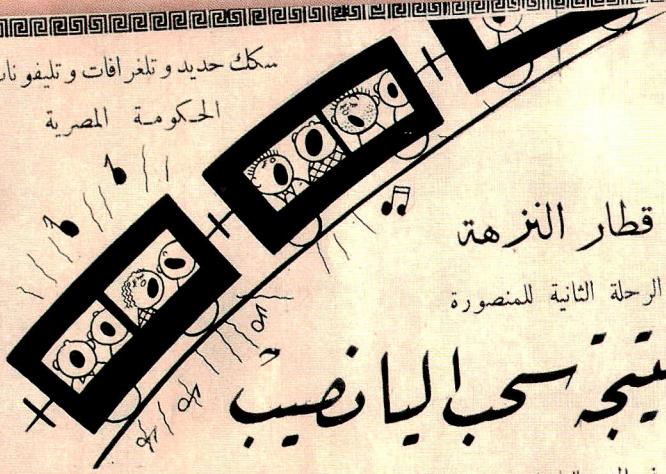 سكك حديد وتلغرافات وتليفونات
الحكومة المصرية
قطار النزهة
الرحلة الثانية للمنصورة
سحب اليانصيب